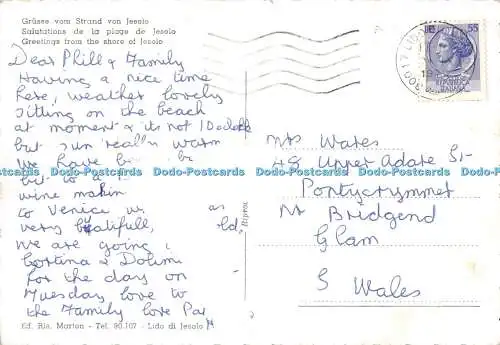 Grüsse vom Strand von Jesolo
Salutations de la plage de Jesolo
Greetings from the shore of Jesolo
Dear Phill & Family
Having a nice time
here, weather lovely
sitting on the beach
at moment & its not 10 oclock
but sun really warm
we have
but to a
wine makin
to Venice w as
very beautifull, old,
we are going
Cortina & Dolomi
for the day on
Tuesday love to
the Family love Pat
Ef. Ris. Marton - Tel. 90.107 - Lido di Jesolo
Riprex
55
Mrs Wares
48 Upper Adare St
Pontycymmer
Nr Bridgend
Glam
S Wales
Postcards Postcards Postcards Postcards Postcards Postcards